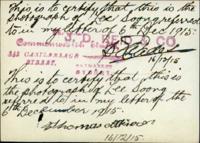 This is to certify that this is the
photograph of Lee Soong referred
to in my letter of 6th Dec 1915.
J. D. REID & CO
Commonwealth
343 CASTLEREAGH
STREET,
SYDNEY
16/12/15
This is to certify that this is
the photograph of Lee Soong
referred to in my letter of the
6th December 1915.
Thomas
16/12/15